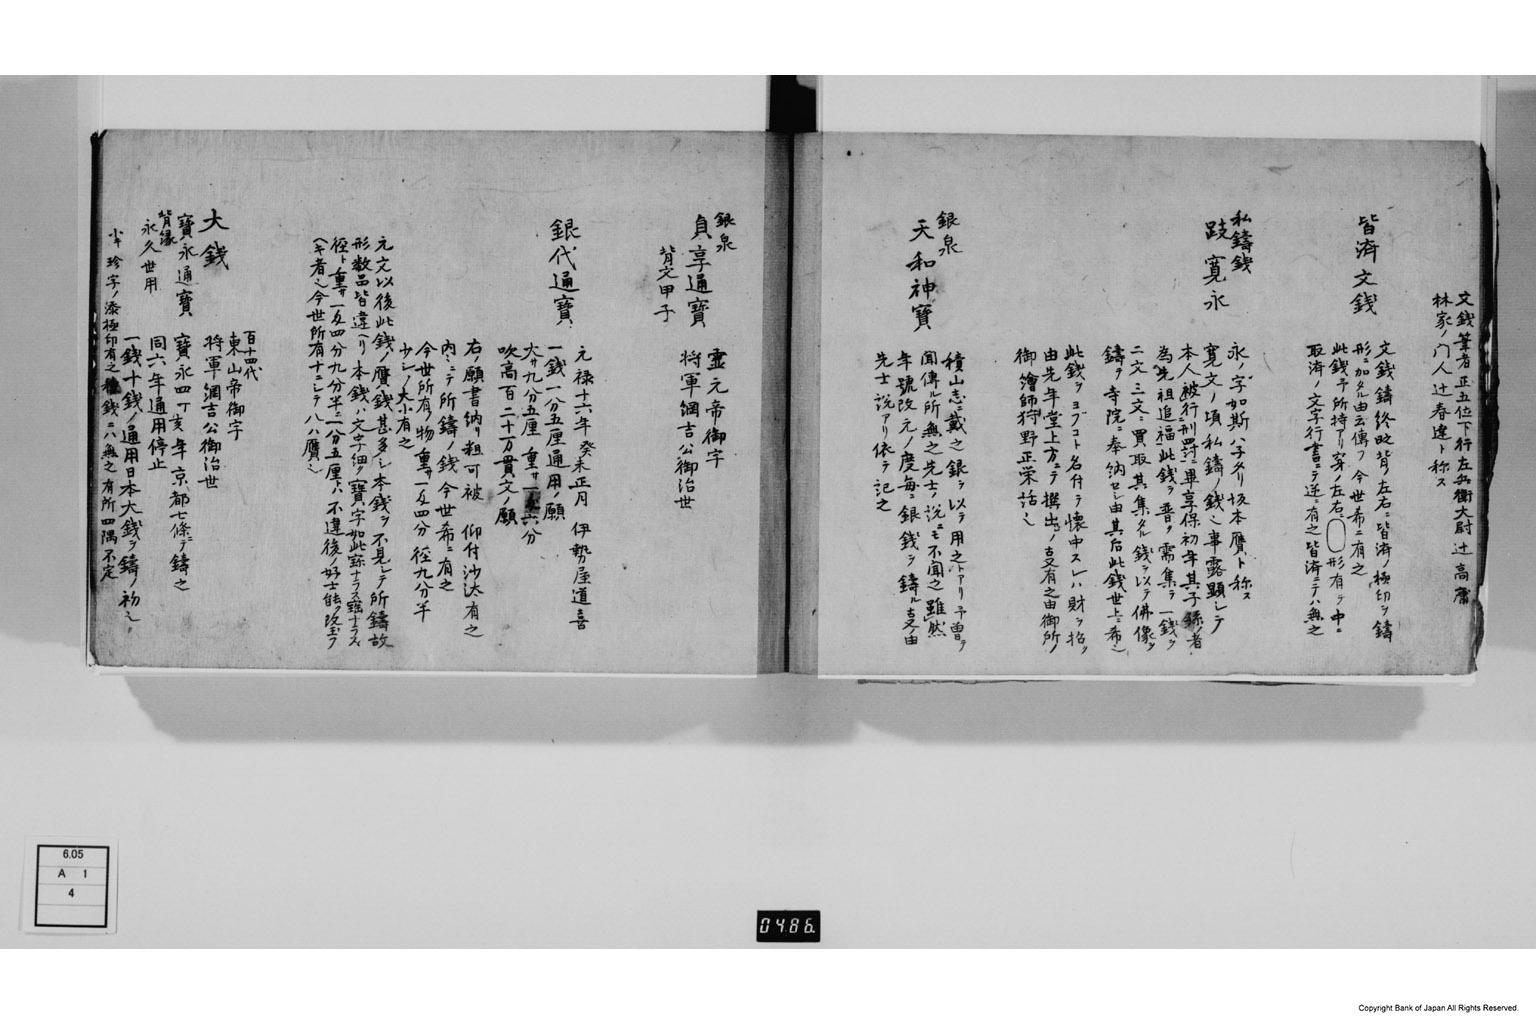 文銭筆者正五位下行左兵衛大尉辻高庸
林家ノ門人辻春達ト称ス
皆濟文銭
文銭鋳終時背ノ左右ニ皆濟ノ極印ヲ鋳
形ニ加タル由云傳フ今世希ニ有之
此銭予所持アリ穿ノ左右ニ 形有テ中ニ
取済ノ文字行書ニテ逆ニ有之皆済ニテハ無之
私鑄銭
跂寛永
永ノ字如斯ハ子タリ坂本贋ト称ス
寛文ノ頃私鑄ノ銭之事露顕シテ
本人被行刑罰畢享保初年其子孫ノ者
為先祖追福此銭ヲ普ク需集テ一銭ヲ
二文三文ニ買取其集タル銭ヲ以テ佛像ヲ
鑄テ寺院ニ奉納セシ由其后此銭世上ニ希也
此銭ヲヨブコト名付テ懐中スレハ財ヲ招ク
由先年堂上方ニテ撰出ノ支有之由御所ノ
御繪師狩野正栄話之
銀泉
天和神寶
積山志ニ載之銀ヲ以テ用之トアリ予曽テ
聞傳ル所無之先士ノ説ニモ不聞之雖然
年號改元ノ度毎ニ銀銭ヲ鑄ル支ノ由
先士説アリ依テ記之
銀泉
貞享通寶
背文甲子
霊元帝御字
将軍綱吉公御治世
銀代通寶
元禄十六年癸未正月 伊勢屋道喜
一銭一分五厘通用ノ願
大サ九分五厘 重サ一匁六分
吹高百二十万貫文ノ願
右ノ願書納リ粗可被 仰付沙汰有之
内々ニテ所鑄ノ銭今世希ニ有之
今世所有ノ物重サ一匁四分径九分半
少シノ大小有之
元文以後此銭ノ贋銭甚多シ本銭ヲ不見シテ所鑄故
形数品皆違ヘリ本銭ハ文字細ク寶ノ字如此
径ト重サ一匁四分九分半ニ一分五厘トハ不違後ノ好
者之今世所有十ニシテ八八贋也
大銭
寶永通寶
背縁
永久世用
百十四代
東山帝御字
将軍綱吉公御治世
寶永四丁亥年京都七條ニテ鑄之
同六年通用停止
一銭十銭ノ通用日本大銭ヲ鑄ノ初也
小サ珍字ノ添極印有之 銭ニハ無之有所四隅不定
6.05
A 1
4
0486.
Copyright Bank of Japan All Rights Reserved.